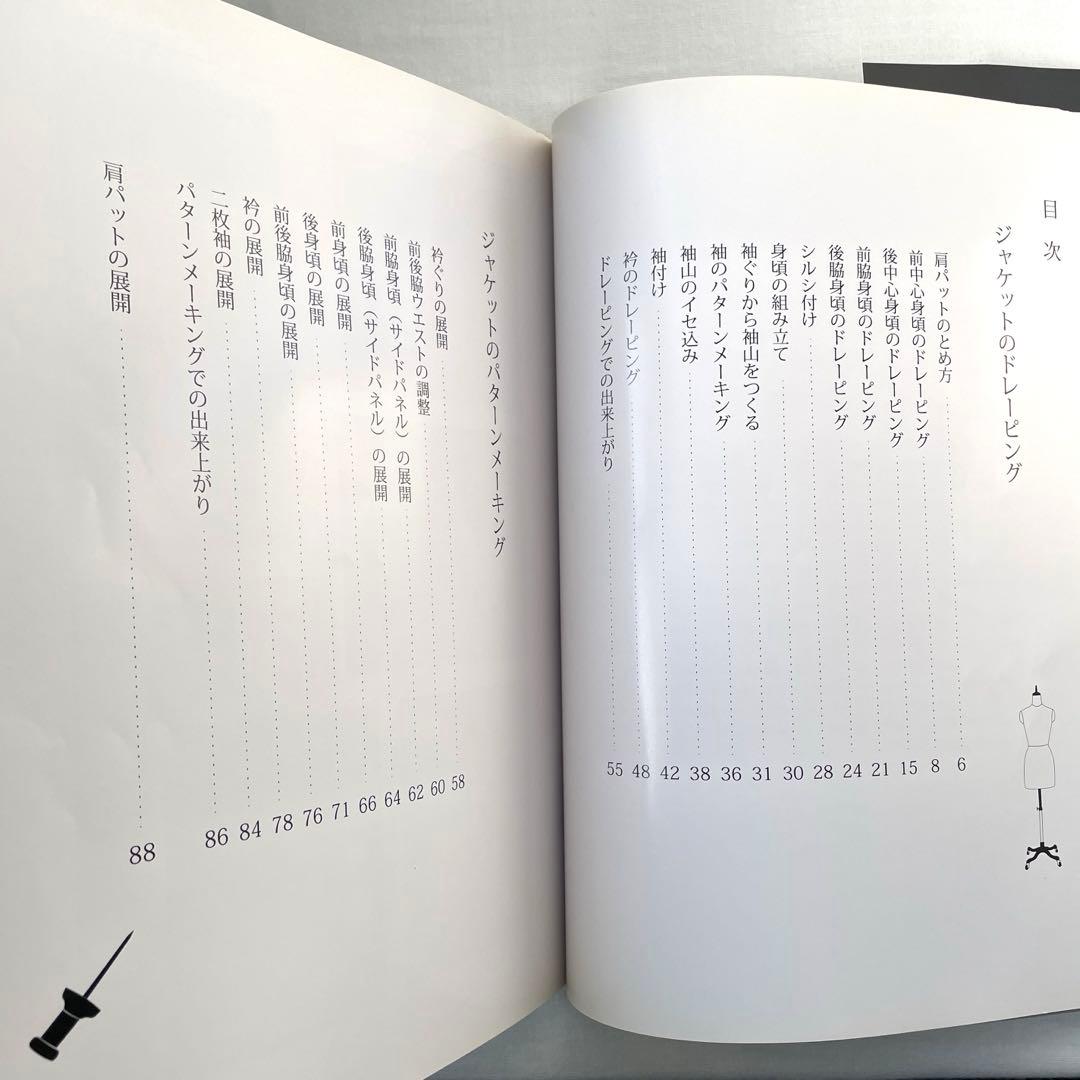 目次
ジャケットのドレーピング
肩パットのとめ方 6
前中心身頃のドレーピング 8
後中心身頃のドレーピング 15
前脇身頃のドレーピング 21
後脇身頃のドレーピング 24
シルシ付け 28
身頃の組み立て 30
袖ぐりから袖山をつくる 31
袖のパターンメーキング 36
袖山のイセ込み 38
袖付け 42
衿のドレーピング 48
ドレーピングでの出来上がり 55
ジャケットのパターンメーキング
衿ぐりの展開 58
前後脇ウエストの調整 60
前脇身頃（サイドパネル）の展開 62
後脇身頃（サイドパネル）の展開 64
前身頃の展開 66
後身頃の展開 71
前後脇身頃の展開 76
衿の展開 78
二枚袖の展開 84
パターンメーキングでの出来上がり 86
肩パットの展開 88